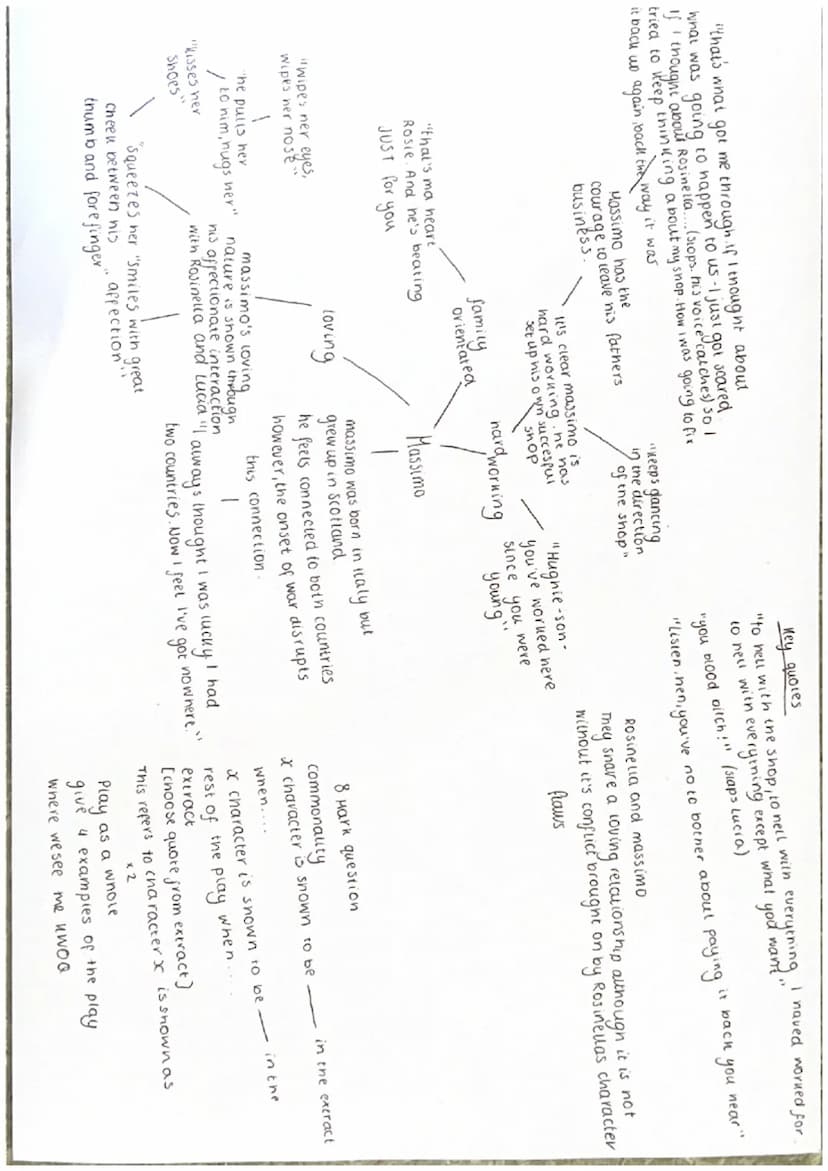 "that's what got me through. if I thought about
what was going to happen to us - I just got scared
If I thought about Rosinella.... (stops. his voice catches) so I
tried to keep thinking about my shop. How I was going to fix
it back up again, back the way it was
Massimo has the
courage to leave his fathers
business.
"keeps glancing
in the direction
of the shop"
It's clear massimo is
hard working. he has
set up his own succesful
shop
"Hughie - son -
you've worked here
since you were
young"
hard
working
"that's ma heart
Rosie. And he's beating
JUST for you
family
orientated
Massimo
"wipes her eyes,
wipes her nose"
"he pulls her
to him, hugs her"
"kisses her
shoes"
loving
massimo's loving
nature is shown through
his affectionate interaction
with Rosinella and Lucia
"squeezes her
cheek between his
thumb and forefinger"
"smiles with great
affection"
massimo was born in italy but
grew up in Scotland
he feels connected to both countries
however, the onset of war disrupts
this connection.
"I always thought I was lucky I had
two countries. Now I feel I've got nowhere."
Key quotes
"to hell with the shop, to hell with everything I haved worked for.
to hell with everything except what you want"
"you blood bitch!" (slaps Lucia)
"listen hen, you've no to bother about paying it back you hear"
Rosinella and massimo
they share a loving relationship although it is not
without it's conflict brought on by Rosinellas character
flaws
8 mark question
commonality
x character is shown to be ___ in the extract
when....
x character is shown to be ___ in the
rest of the play when....
extract
[choose quote from extract]
this refers to character x is shown as
x2
Play as a whole
give 4 examples of the play
where we see me KWOQ